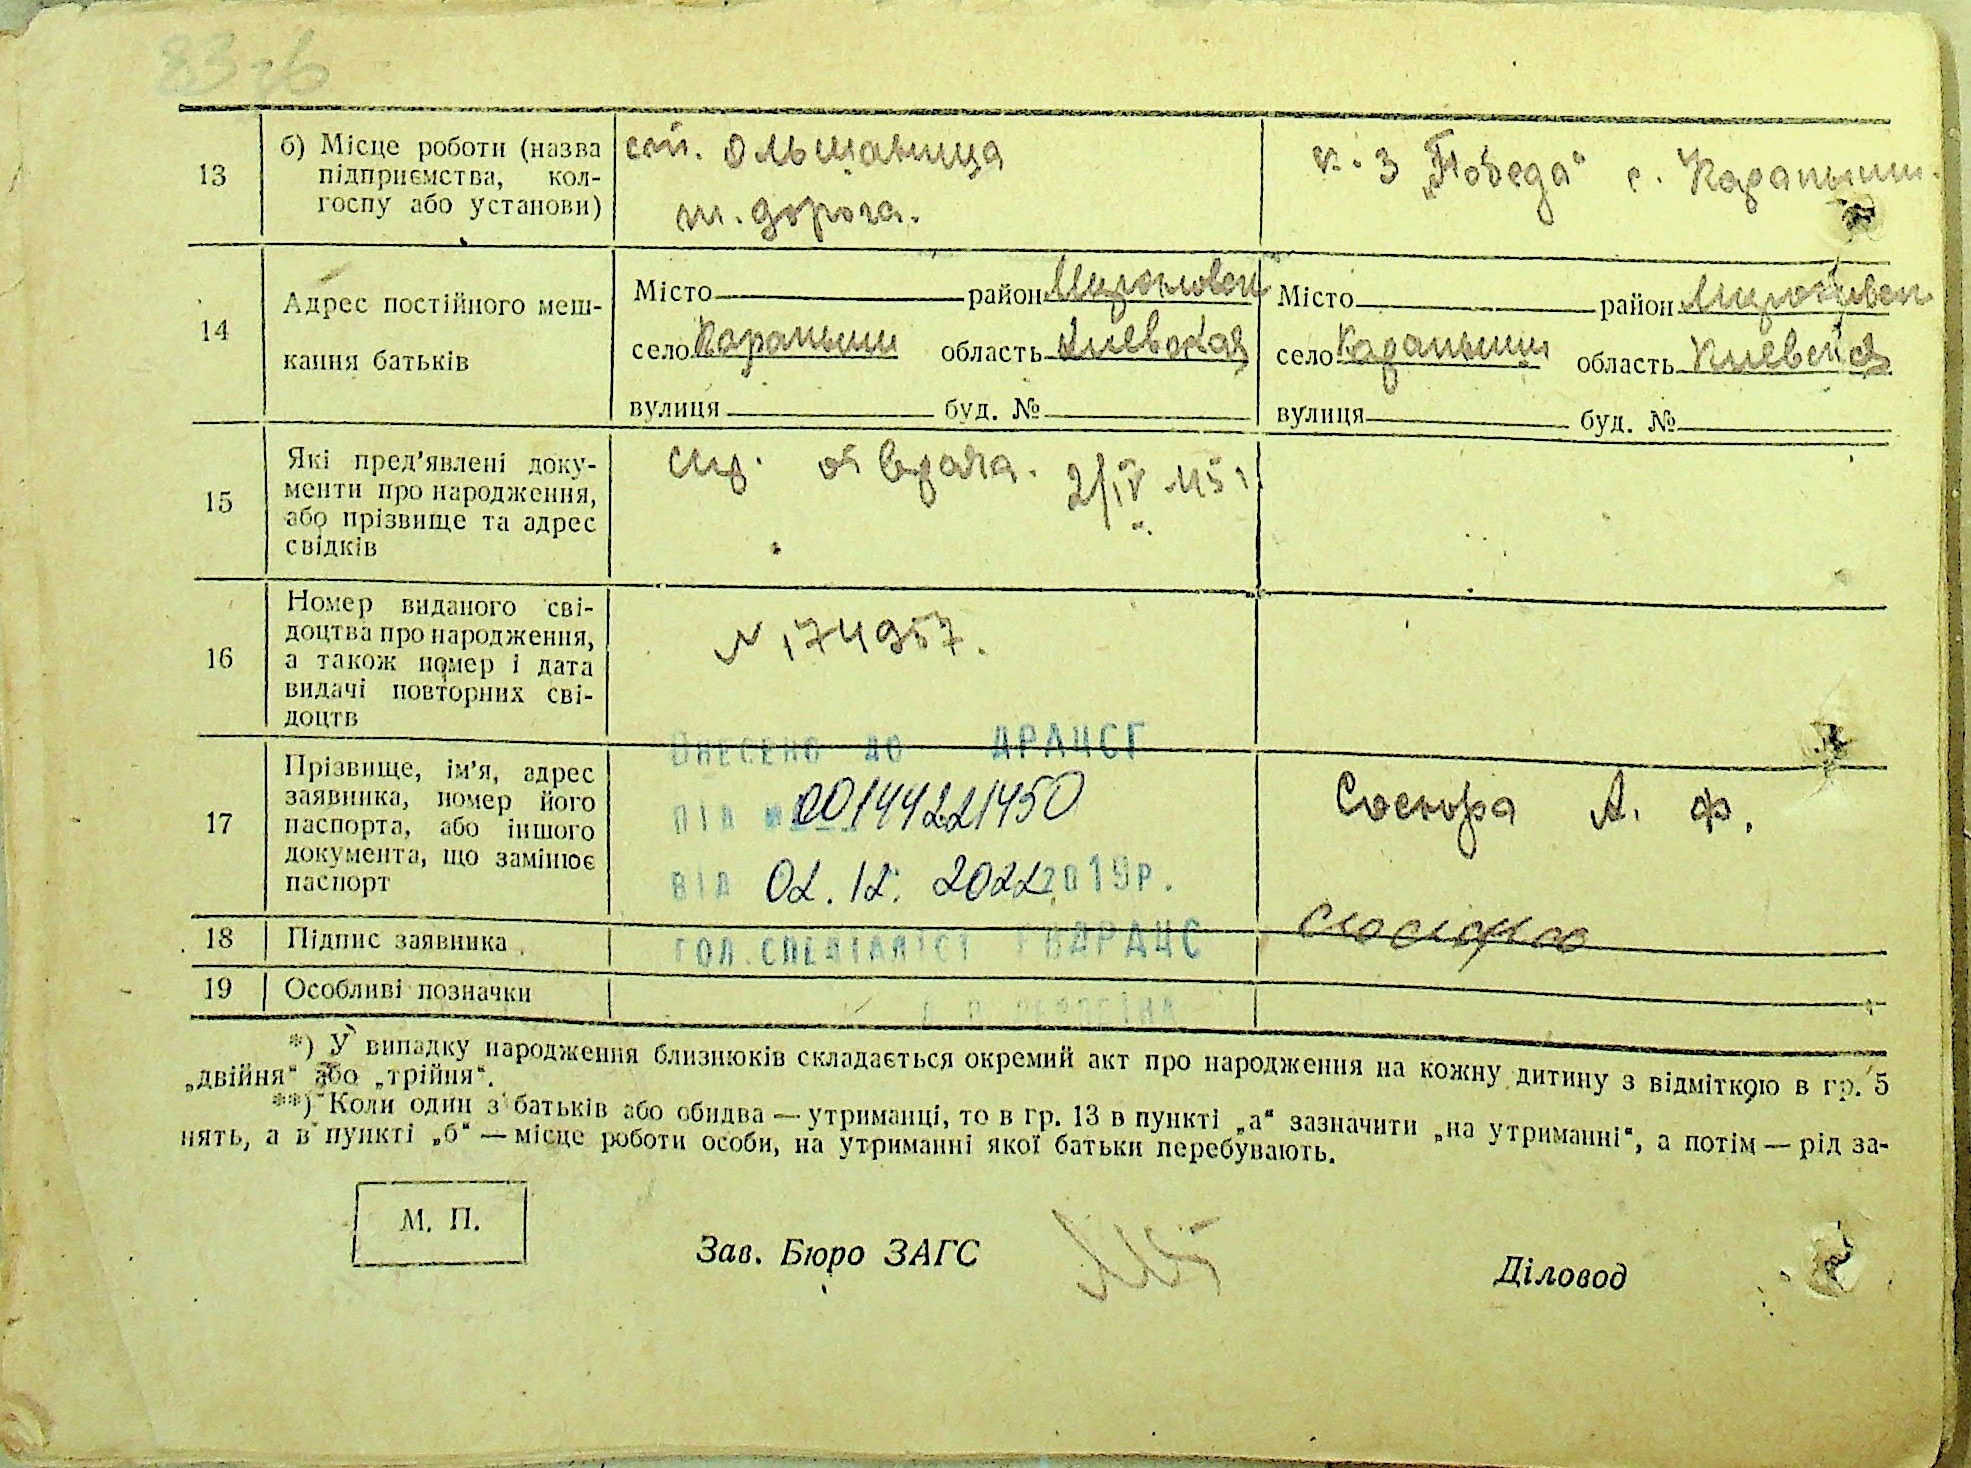 83 зв
13
б) Місце роботи (назва
підприємства, кол-
госпу або установи)
ст. Ольшаница
ж. дорога.
к-з „Победа“ с. Карапыши.
14
Адрес постійного меш-
кання батьків
Місто район Мироновск
село Карапыши область Киевская
вулиця буд. №
Місто район Мироновск
село Карапыши область Киевская
вулиця буд. №
15
Які пред’явлені доку-
менти про народження,
або прізвище та адрес
свідків
от врача. 2/IV 45 г
16
Номер виданого сві-
доцтва про народження,
а також номер і дата
видачі повторних сві-
доцтв
N 174957.
17
Прізвище, ім’я, адрес
заявника, номер його
паспорта, або іншого
документа, що замінює
паспорт
Внесено до ДРАЦСГ
під № 00144221450
від 02.12. 2022 2019р.
Сосюра А. Ф.
18
Підпис заявника
гол.спеціаліст ГВДРАЦС
19
Особливі позначки
*) У випадку народження близнюків складається окремий акт про народження на кожну дитину з відміткою в гр. 5
„двійня“ або „трійня“.
**) Коли один з батьків або обидва — утриманці, то в гр. 13 в пункті „а“ зазначити „на утриманні“, а потім — рід за-
нять, а в пункті „б“ — місце роботи особи, на утриманні якої батьки перебувають.
М. П.
Зав. Бюро ЗАГС
Діловод